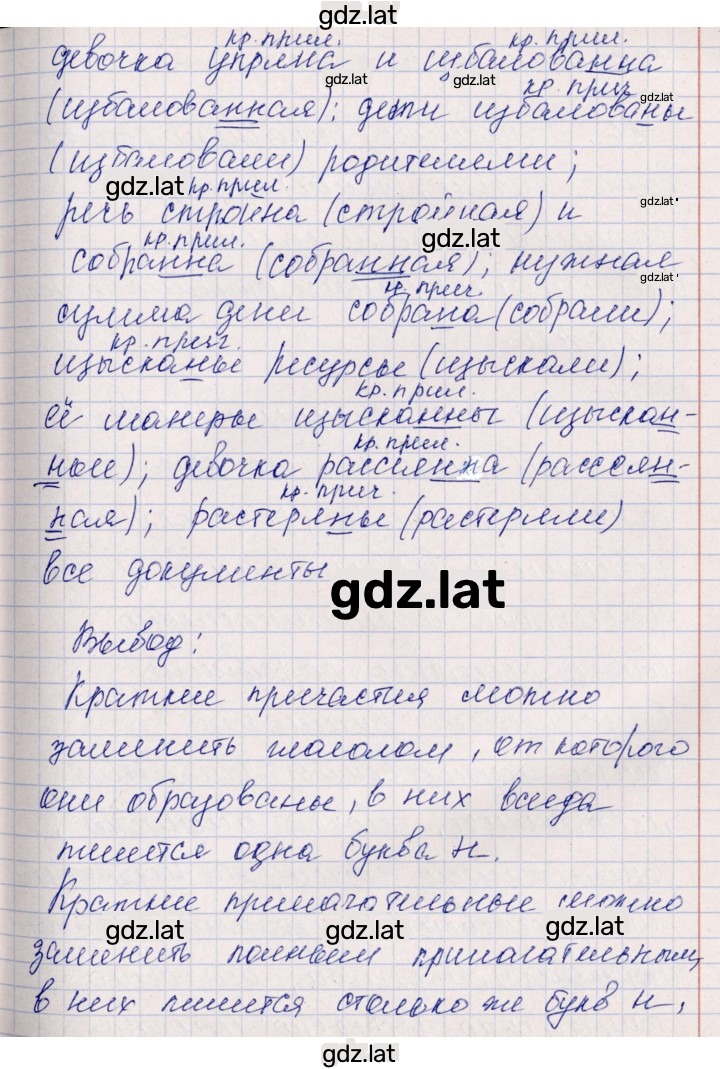 gdz.lat
кр.прил. кр.прил.
девочка упряма и избалованна
gdz.lat gdz.lat
кр.прич. gdz.lat
(избалованная); дети избалованы
(избаловали) родителями;
gdz.lat кр.прил. gdz.lat
речь стройна (стройная) и
кр.прил. gdz.lat
собранна (собранная); нужная
кр.прич. gdz.lat
сумма дени собрана (собрали);
кр.прич.
изысканы ресурсы (изыскали);
кр.прил.
её манеры изысканны (изыскан-
кр.прил.
ные); девочка рассеянна (рассеян-
кр.прич.
ная); растеряны (растеряли)
все документы
gdz.lat
Вывод:
Краткие причастия можно
заменить глаголом, от которого
они образованы, в них всегда
пишется одна буква н.
Краткие прилагательные можно
gdz.lat gdz.lat gdz.lat
заменить полным прилагательным,
в них пишется столько же букв н,
gdz.lat